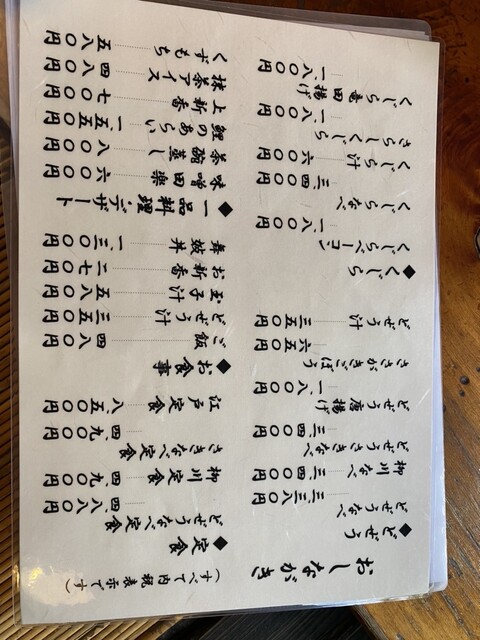 おしながき
（すべて内税表示です）
◆どぜう
どぜうなべ 三、三八〇円
柳川なべ 三、四〇〇円
どぜうさきなべ 三、四〇〇円
どぜう唐揚げ 一、八〇〇円
ささがきごぼう 六五〇円
どぜう汁 三五〇円
◆くじら
くじらベーコン 一、八〇〇円
くじらなべ 三、四〇〇円
くじら汁 六〇〇円
さらしくじら 一、八〇〇円
くじら竜田揚げ 一、八〇〇円
◆定食
どぜうなべ定食 四、八八〇円
柳川定食 四、九〇〇円
さきなべ定食 四、九〇〇円
江戸定食 八、五〇〇円
◆お食事
ご飯 四八〇円
どぜう汁 三五〇円
玉子汁 五八〇円
お新香 二七〇円
舞姫丼 一、三〇〇円
◆一品料理・デザート
味噌田楽 六〇〇円
茶碗蒸し 八〇〇円
鯉のあらい 一、五五〇円
上新香 七〇〇円
抹茶アイス 四八〇円
くずもち 五八〇円